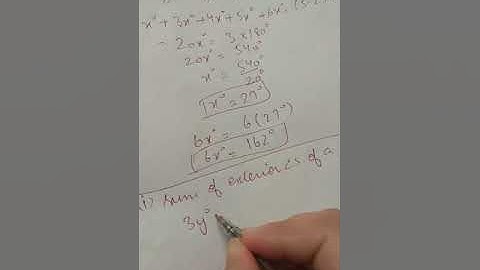 x° + 3x° + 4x° + 5x° + 6x° = (5-2
20x° = 3 x 180°
20x° = 540°
x° = 540°
20°
x° = 27°
6x° = 6(27°)
6x° = 162°
Sum of exterior ∠s of a
3y°